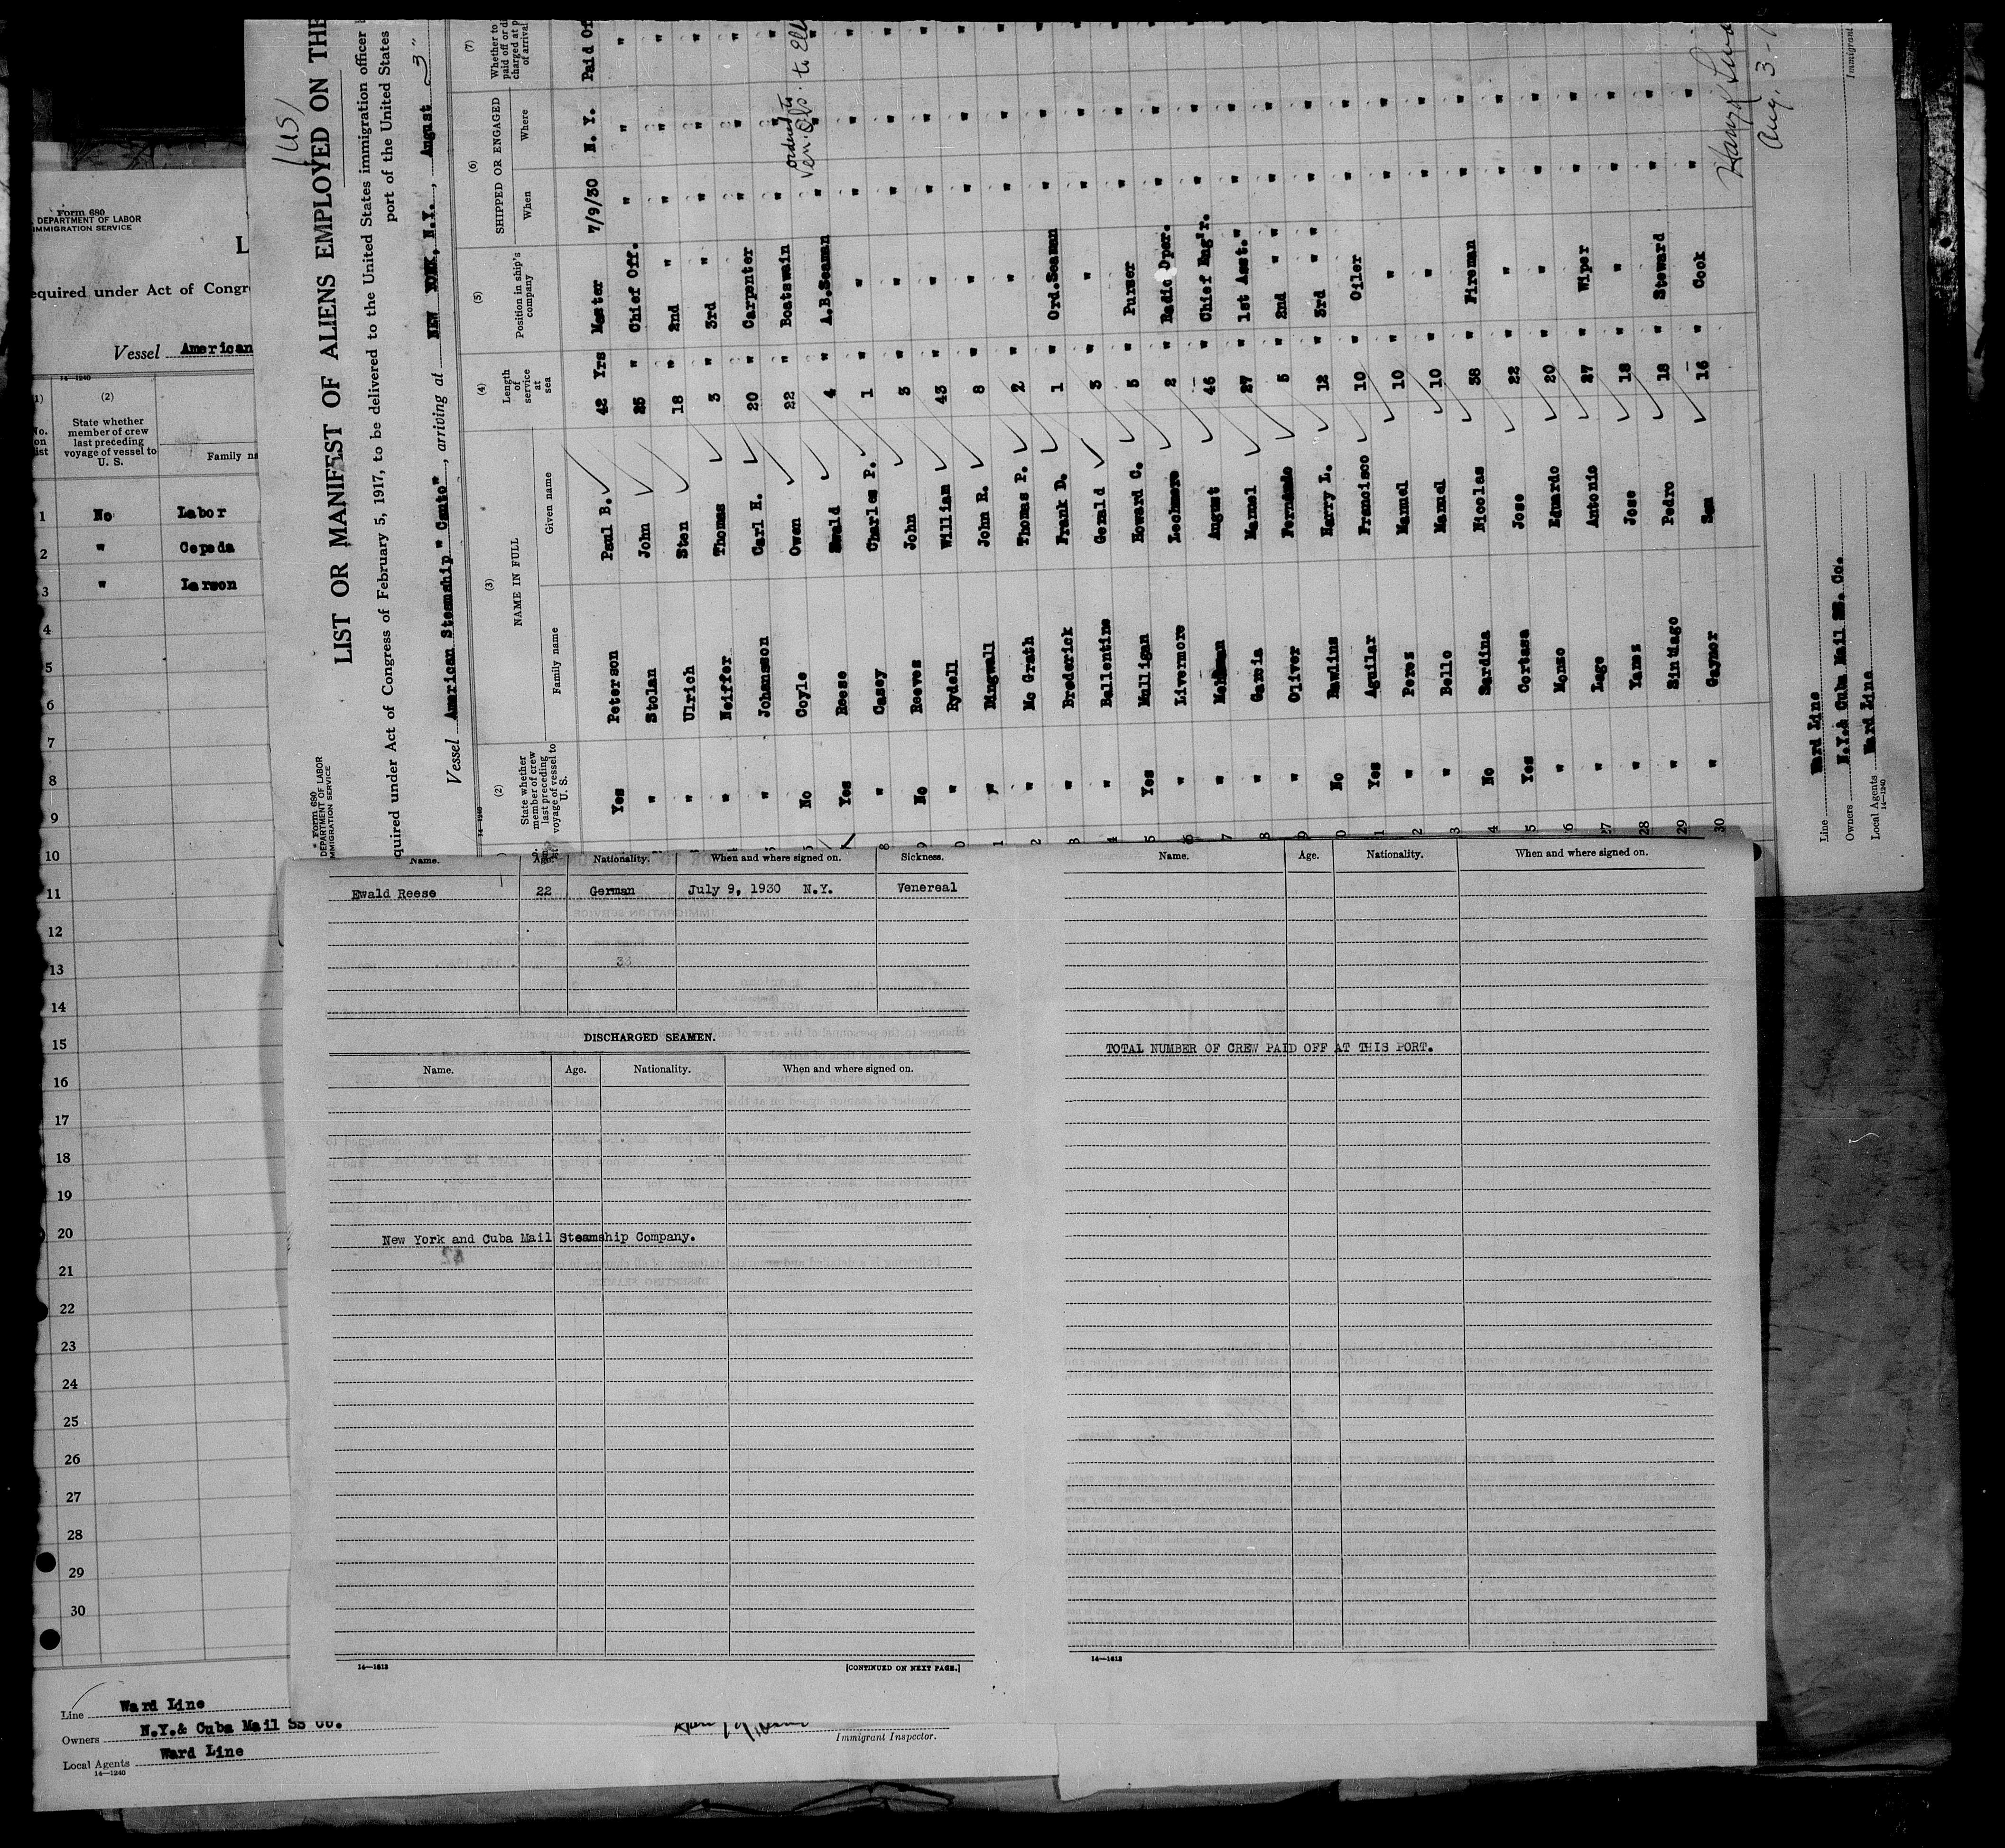 Form 680
DEPARTMENT OF LABOR
IMMIGRATION SERVICE
L
equired under Act of Congre
Vessel American
14—1240
(2)
State whether
member of crew
last preceding
voyage of vessel to
U. S.
Family na
1 No Labor
2 " Cepeda
3 " Larson
4
5
6
7
8
9
10
11
12
13
14
15
16
17
18
19
20
21
22
23
24
25
26
27
28
29
30
Line Ward Line
Owners N.Y.& Cuba Mail SS Co.
Local Agents Ward Line
14—1240
Immigrant Inspector.
(US)
Form 680
DEPARTMENT OF LABOR
IMMIGRATION SERVICE
LIST OR MANIFEST OF ALIENS EMPLOYED ON THE
quired under Act of Congress of February 5, 1917, to be delivered to the United States immigration officer
port of the United States
Vessel American Steamship "Canto", arriving at NEW YORK, N.Y., August 3"
14—1240
(2) (3) (4) (5) (6) (7)
State whether member of crew last preceding voyage of vessel to U. S.
NAME IN FULL
Family name Given name
Length of service at sea
Position in ship's company
SHIPPED OR ENGAGED
When Where
Whether to paid off or charged at of arrival
Yes Peterson Paul B. 42 Yrs Master 7/9/30 N. Y. Paid Of
" Stolan John 25 " Chief Off. " " "
" Ulrich Sten 18 " 2nd " " " "
" Neiffer Thomas 3 " 3rd " " " "
" Johansson Carl H. 20 " Carpenter " " "
No Coyle Owen 22 " Boatswain " " "
Yes Reese Ewald 4 " A.B.Seaman " " "
ordered to
" Casey Charles P. 1 " " " " "
No Reeves John 3 " " " " "
" Rydell William 43 " " " " "
" Dingwall John R. 8 " " " " "
" Mc Grath Thomas P. 2 " " " " "
" Brederick Frank D. 1 " Ord.Seaman " " "
" Ballentine Gerald 3 " " " " "
Yes Mulligan Howard C. 5 " Purser " " "
" Livermore Lechmere 2 " Radio Oper. " " "
" August 46 " Chief Eng'r. " " "
" Garcia Manuel 27 " 1st Asst." " " "
" Oliver Fernando 5 " 2nd " " " " "
No Rawlins Harry L. 12 " 3rd " " " " "
Yes Aguilar Francisco 10 " Oiler " " "
" Perez Manuel 10 " " " " "
" Bello Manuel 10 " " " " "
No Sardina Nicolas 38 " Fireman " " "
Yes Cortasa Jose 22 " " " " "
" Monzo Eduardo 20 " " " " "
" Lage Antonio 27 " Wiper " " "
" Yanes Jose 18 " " " " "
" Sintiago Pedro 18 " Steward " " "
" Gaynor Sam 16 " Cook " " "
Aug. 3-
Line Ward Line
Owners N.Y.& Cuba Mail SS. Co.
Local Agents Ward Line
14—1240
Immigrant
Name. Age. Nationality. When and where signed on. Sickness.
Ewald Reese 22 German July 9, 1930 N.Y. Venereal
DISCHARGED SEAMEN.
Name. Age. Nationality. When and where signed on.
New York and Cuba Mail Steamship Company.
14—1613
[CONTINUED ON NEXT PAGE.]
Name. Age. Nationality. When and where signed on.
TOTAL NUMBER OF CREW PAID OFF AT THIS PORT.
14—1613